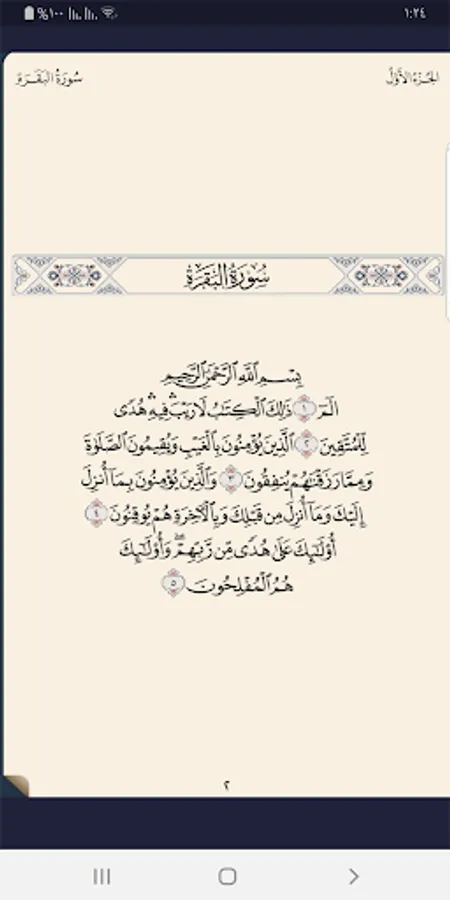 ١:٢٤
%١٠٠
الجزء الأول
سورة البقرة
سُورَةُ البَقَرَةِ
بِسْمِ اللَّهِ الرَّحْمَٰنِ الرَّحِيمِ
الٓمٓ ١ ذَٰلِكَ ٱلْكِتَٰبُ لَا رَيْبَ ۛ فِيهِ ۛ هُدًى
لِّلْمُتَّقِينَ ٢ ٱلَّذِينَ يُؤْمِنُونَ بِٱلْغَيْبِ وَيُقِيمُونَ ٱلصَّلَوٰةَ
وَمِمَّا رَزَقْنَٰهُمْ يُنفِقُونَ ٣ وَٱلَّذِينَ يُؤْمِنُونَ بِمَآ أُنزِلَ
إِلَيْكَ وَمَآ أُنزِلَ مِن قَبْلِكَ وَبِٱلْءَاخِرَةِ هُمْ يُوقِنُونَ ٤
أُو۟لَٰٓئِكَ عَلَىٰ هُدًى مِّن رَّبِّهِمْ ۖ وَأُو۟لَٰٓئِكَ
هُمُ ٱلْمُفْلِحُونَ ٥
٢